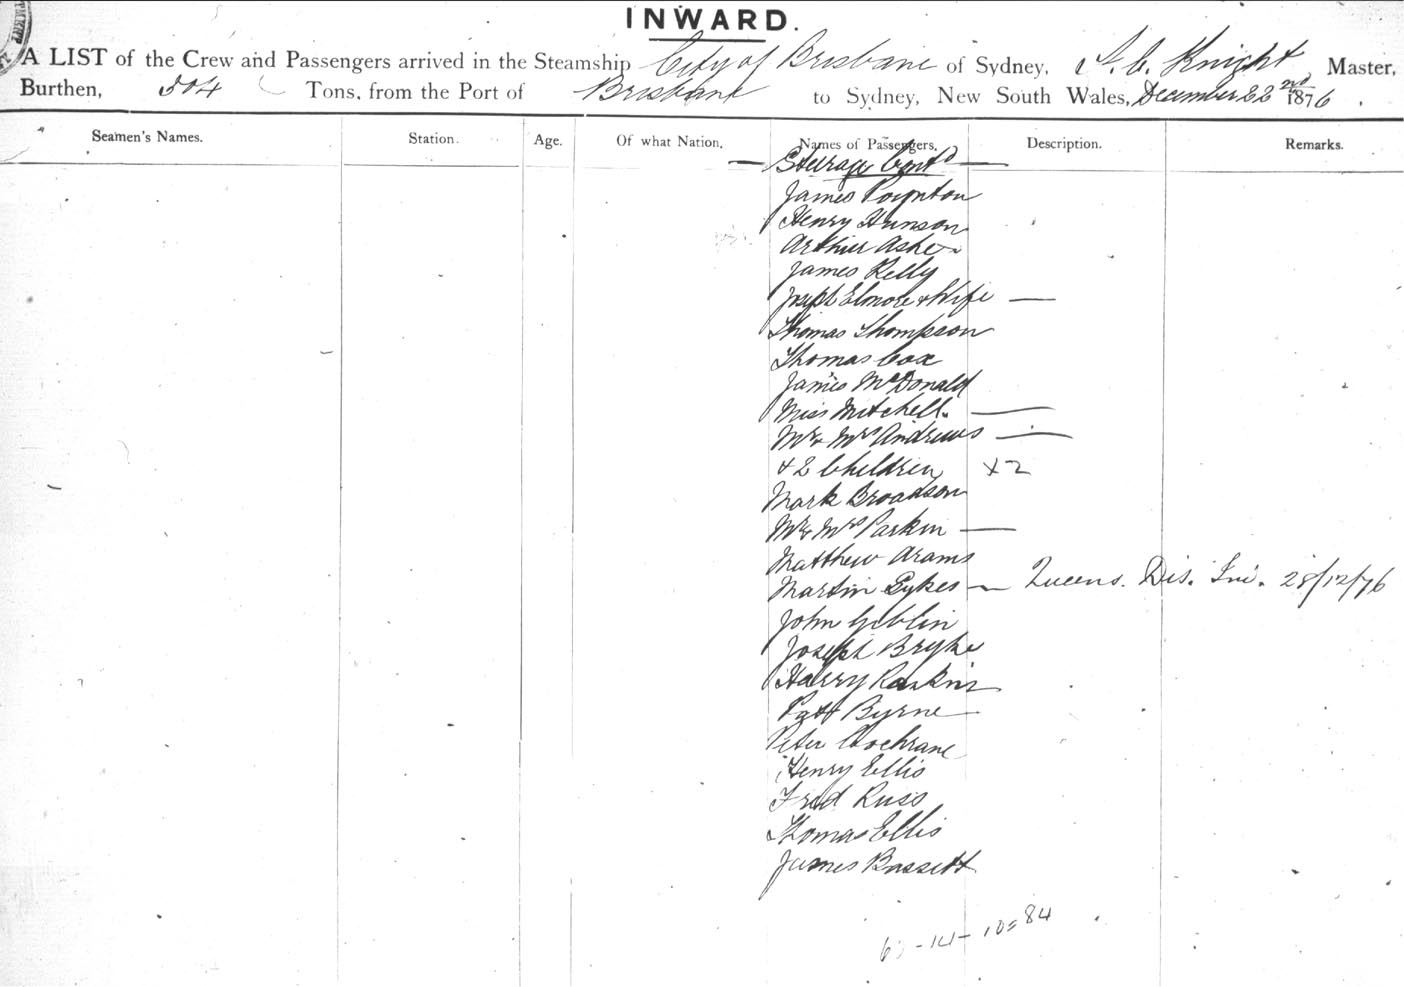 INWARD.
A LIST of the Crew and Passengers arrived in the Steamship City of Brisbane of Sydney, Knight Master,
Burthen, 504 Tons, from the Port of Brisbane to Sydney, New South Wales, December 22nd 1876.
Seamen's Names. Station. Age. Of what Nation. Names of Passengers. Description. Remarks.
Steerage Contd
James Poynton
Henry Hunson
Arthur Asher
James Kelly
Joseph Elmore & Wife
Thomas Thompson
Thomas Cox
James McDonald
Miss Mitchell
Mr & Mrs Andrews
& 2 Children x2
Mark Broadson
Mr & Mrs Parkin
Matthew Arams
Martin Sykes Queens. Dis. 28/12/76
John Giblin
Joseph Bryke
Harry Rankin
Patt Byrne
Peter Cochrane
Henry Ellis
Fred Russ
Thomas Ellis
James Bassett
84